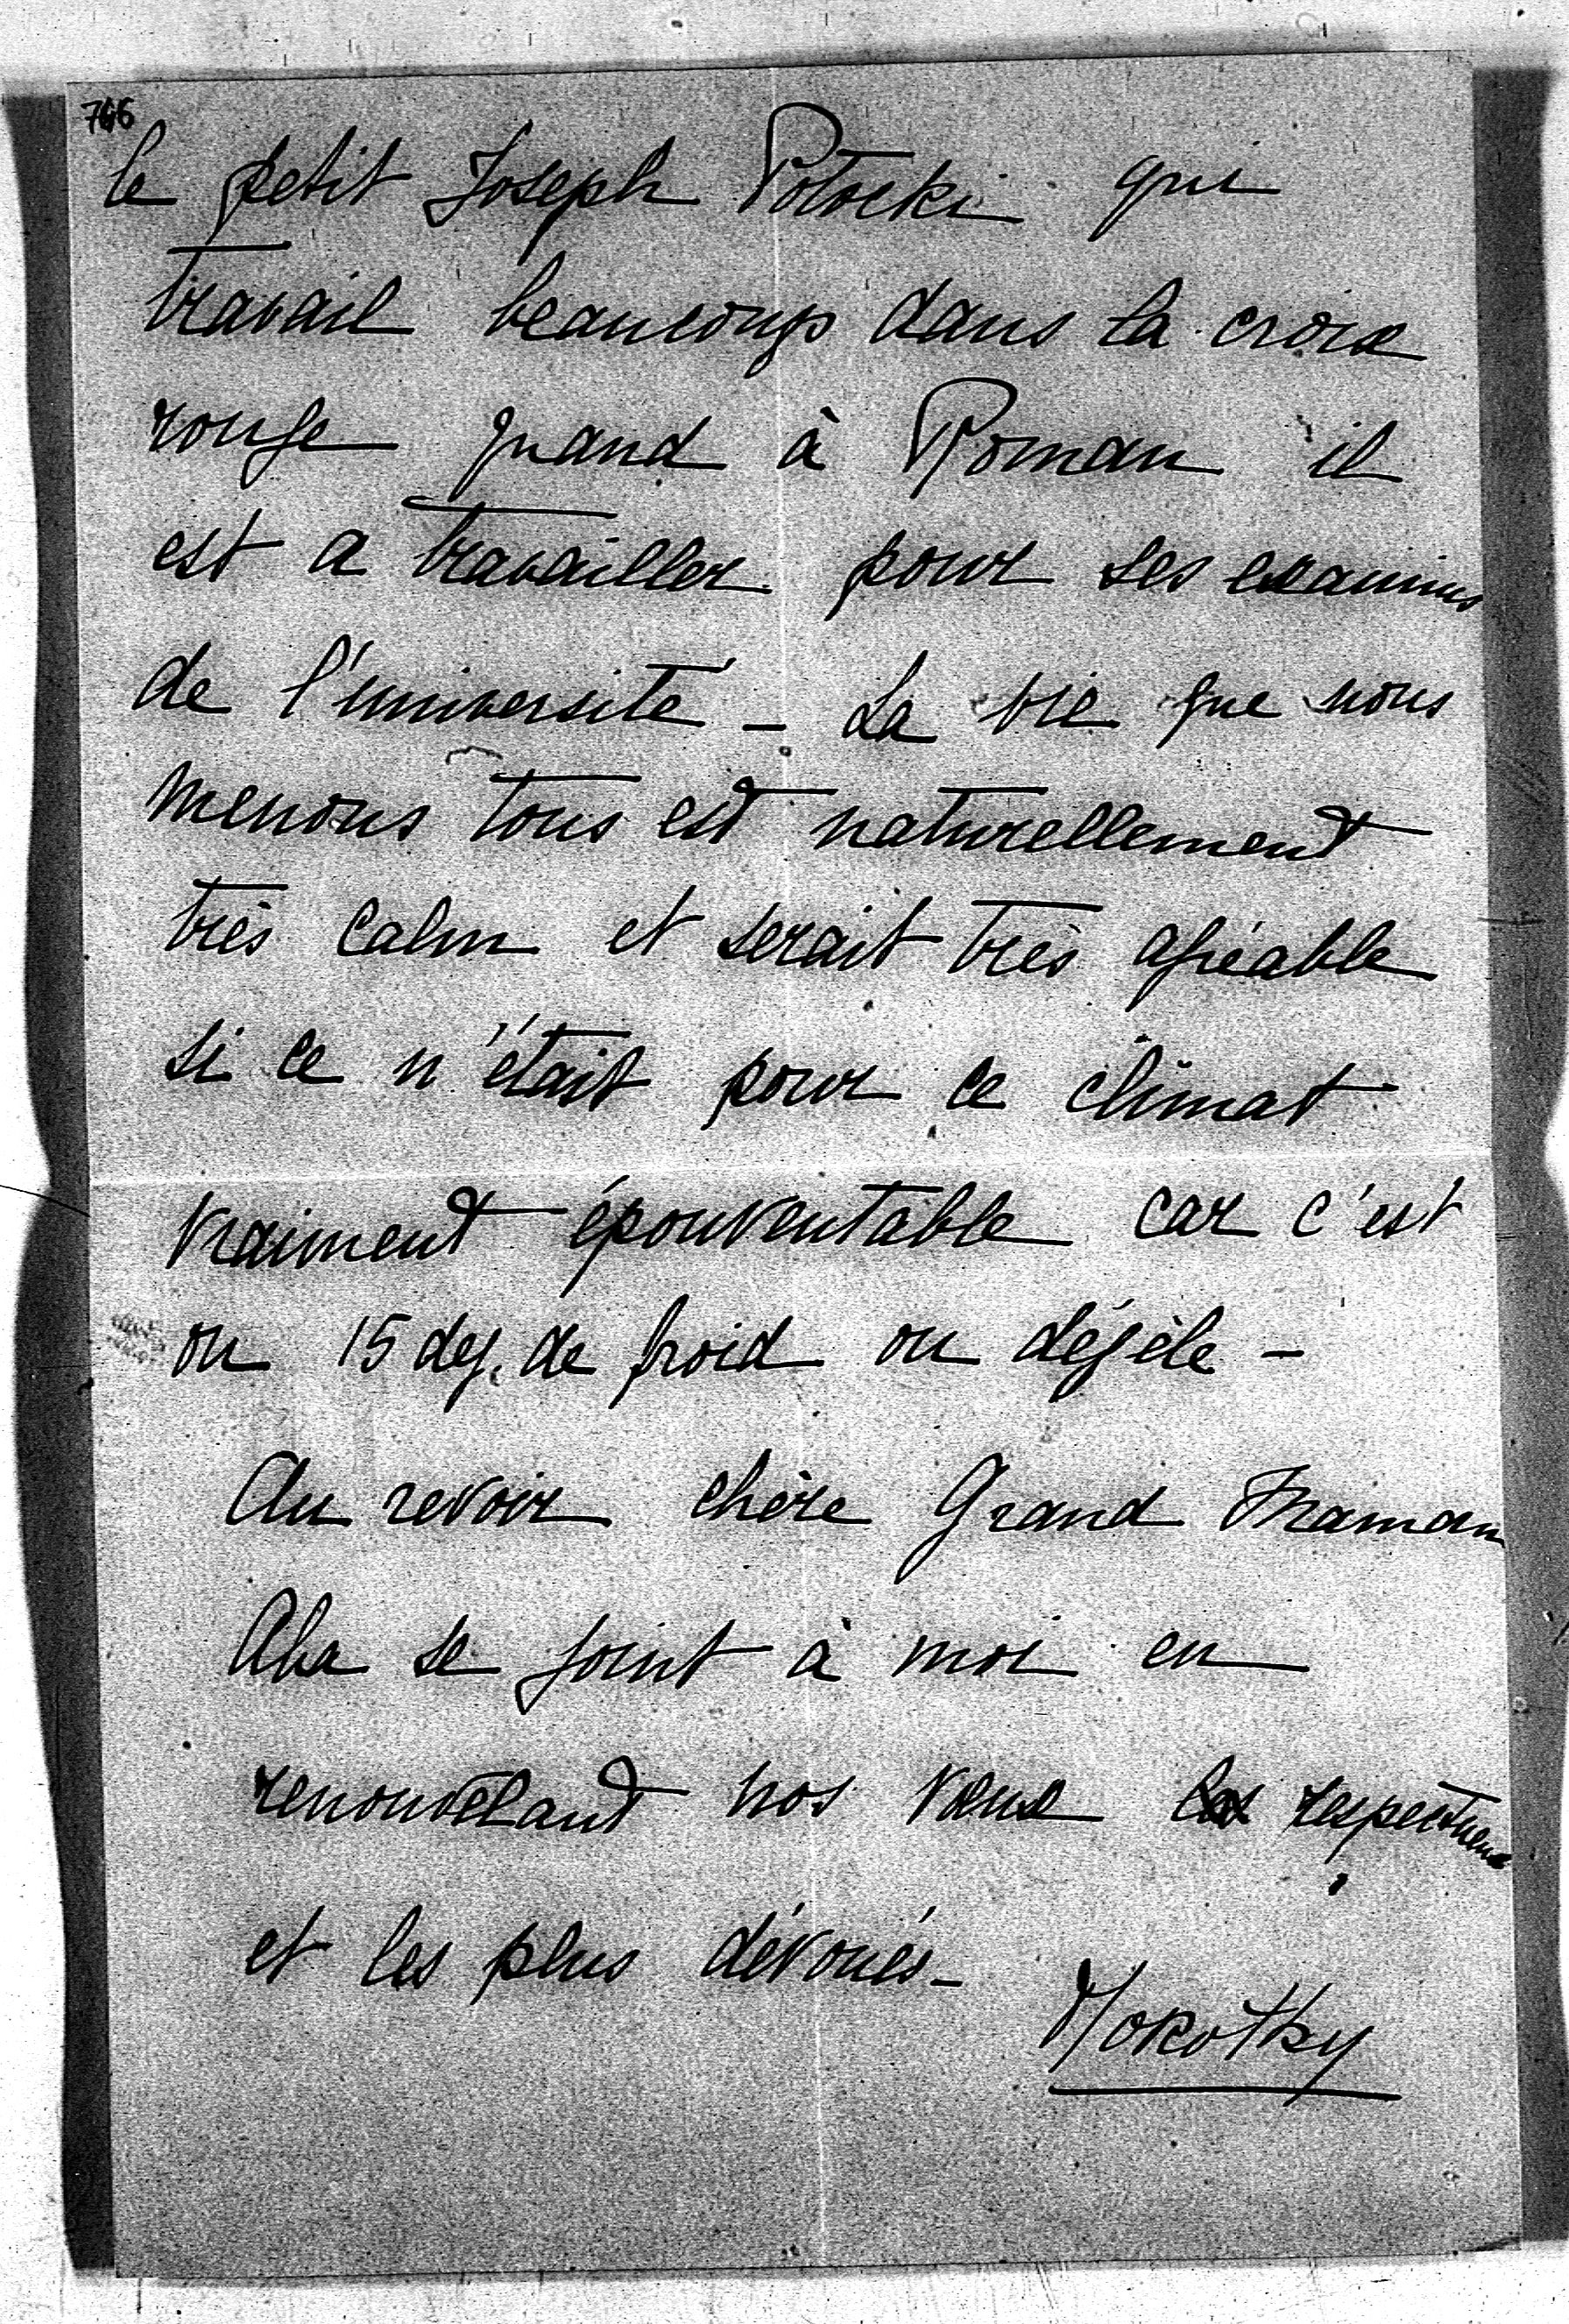 746
le petit Joseph Potocki qui
travail beaucoup dans la croix
rouge quand à Roman il
est a travailler pour ses examins
de l'université - La vie que nous
menons tous est naturellement
très calm et serait très agréable
si ce n'était pour ce climat
vraiment épouventable car c'est
ou 15 deg. de froid ou dégèle -
Au revoir chère Grand Maman
Aba se joint à moi en
renouvelant nos vœux les respectueux
et les plus dévoués -